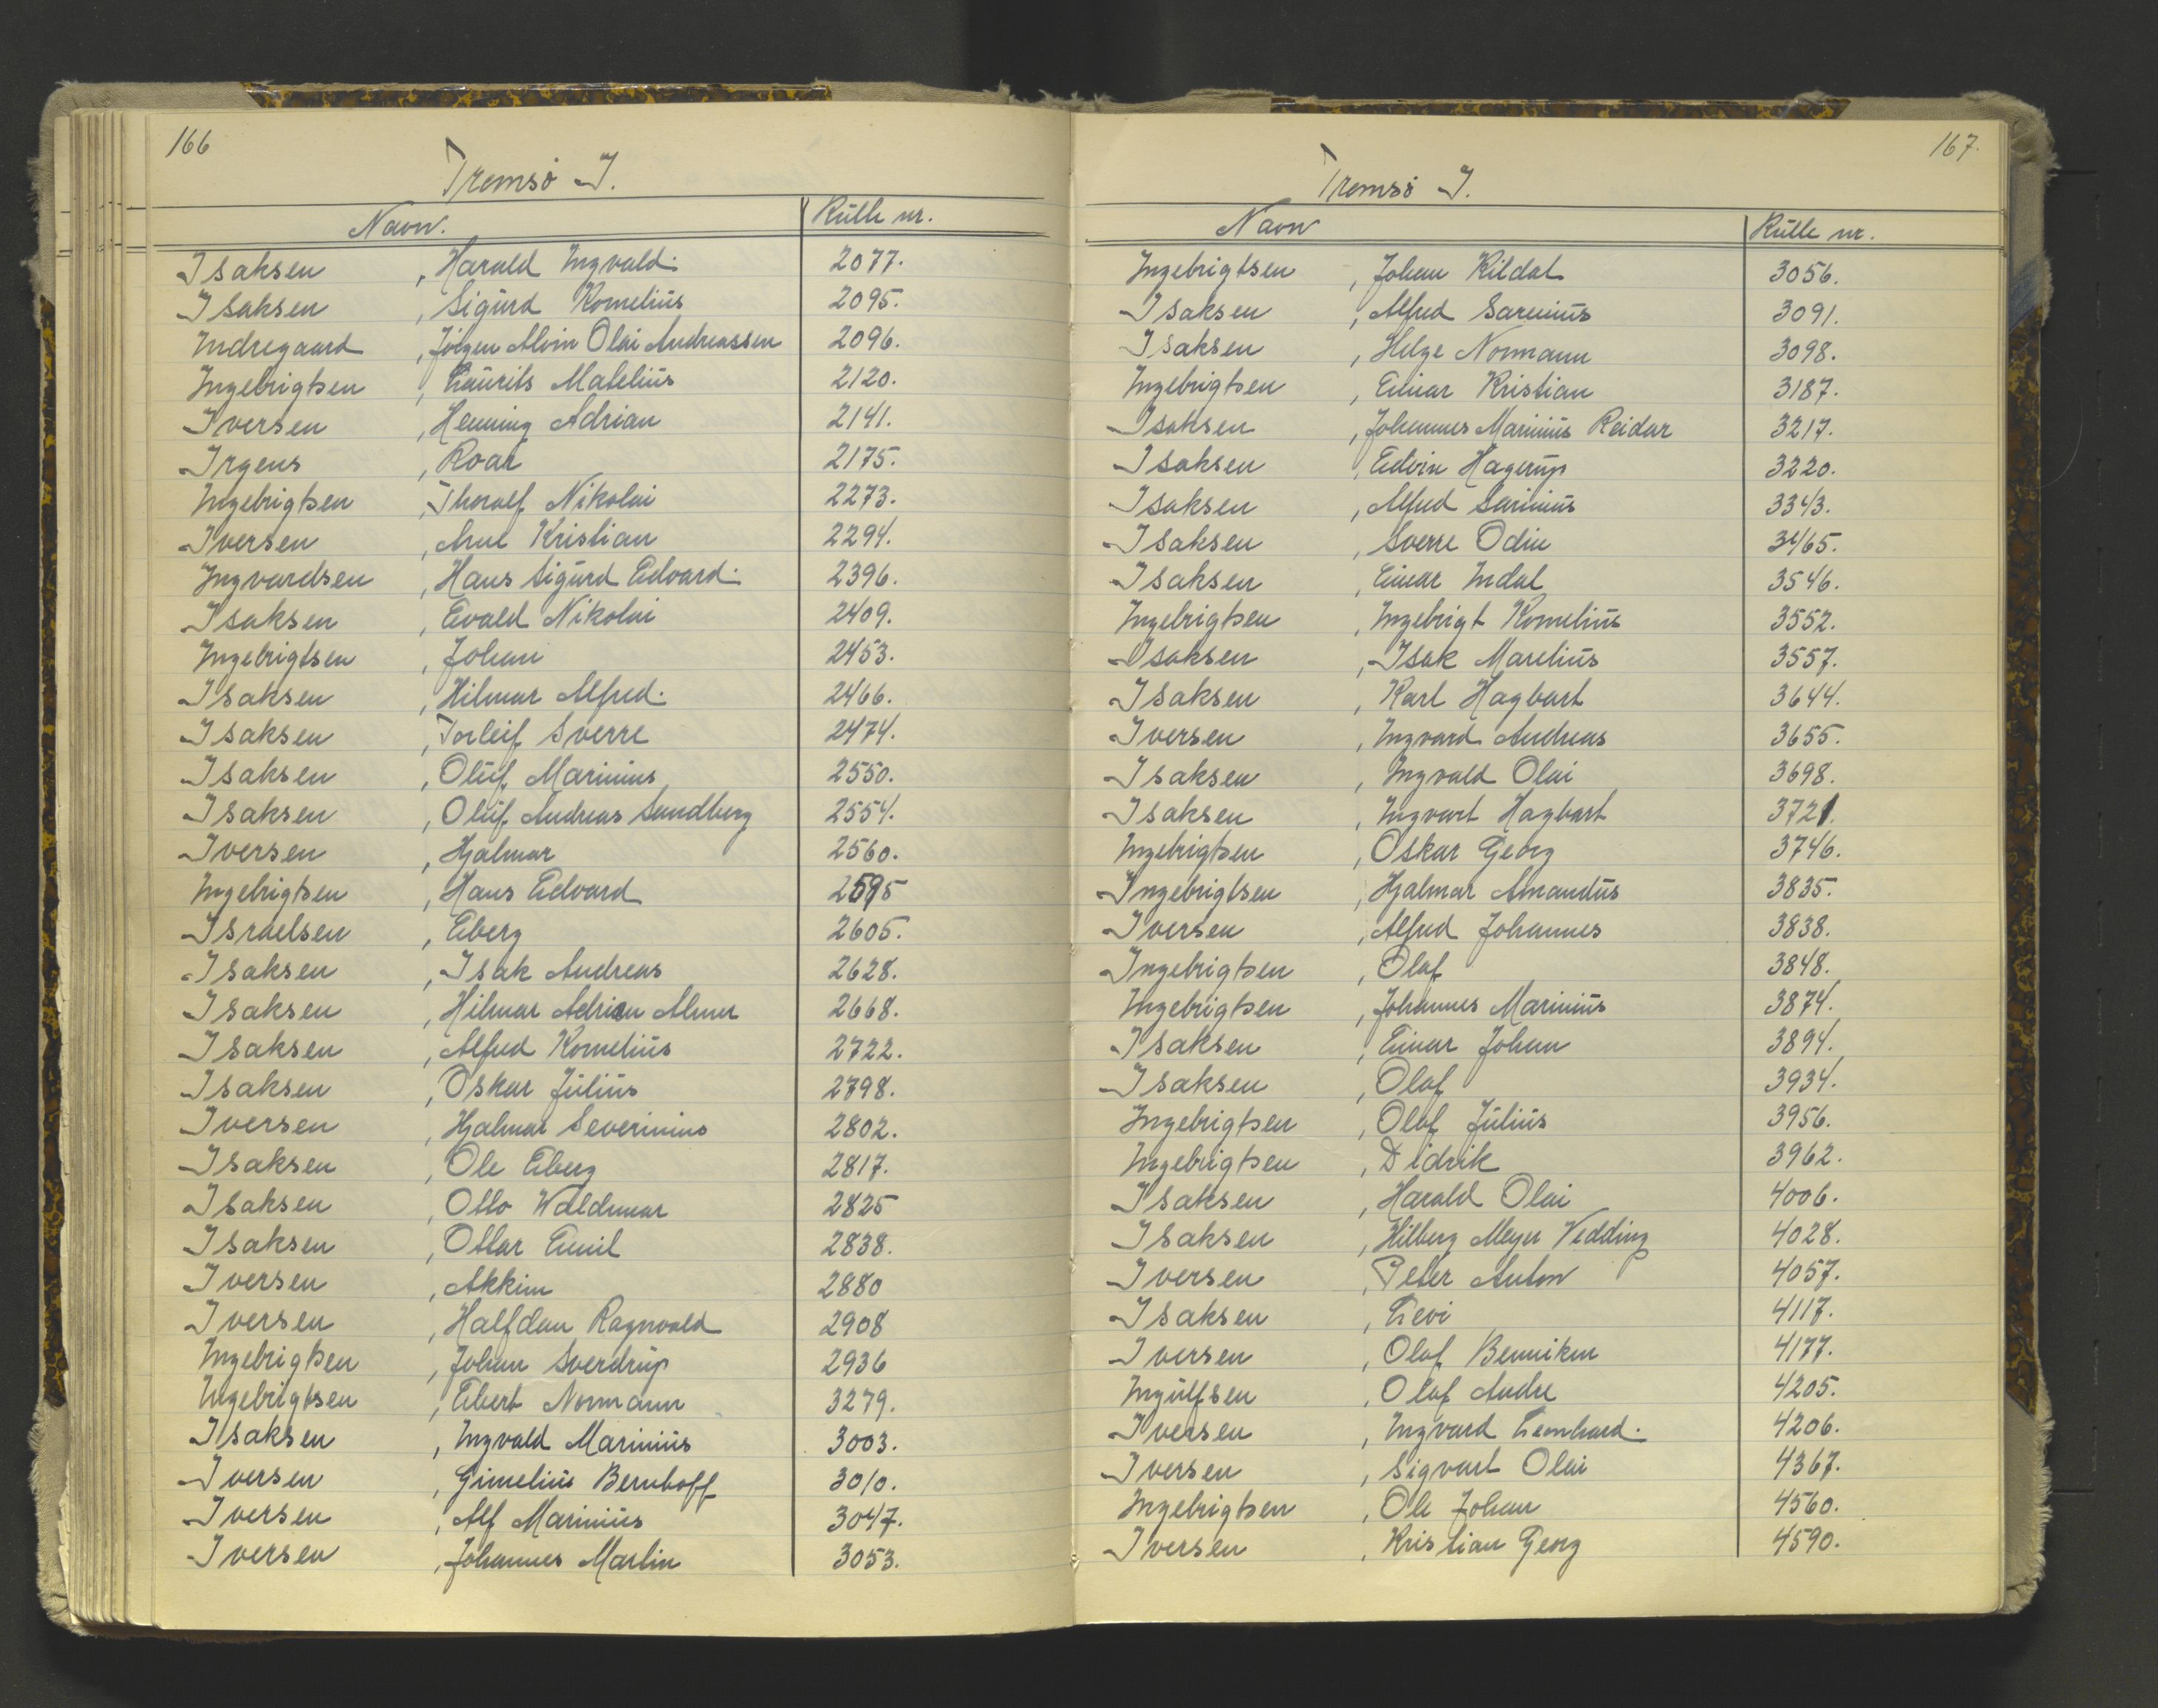 166
Tromsø I.
Navn. Rulle nr.
Isaksen, Harald Ingvald. 2077.
Isaksen, Sigurd Kornelius 2095.
Indregaard, Jörgen Alvin Olai Andreassen 2096.
Ingebrigtsen, Laurits Matelius 2120.
Iversen, Henning Adrian 2141.
Irgens, Roar 2175.
Ingebrigtsen, Thoralf Nikolai 2273.
Iversen, Arne Kristian 2294.
Ingvardsen, Hans Sigurd Edvard. 2396.
Isaksen, Evald Nikolai 2409.
Ingebrigtsen, Johan 2453.
Isaksen, Hilmar Alfred. 2466.
Isaksen, Torleif Sverre 2474.
Isaksen, Oluf Marinius 2550.
Isaksen, Oluf Andreas Sandberg 2554.
Iversen, Hjalmar 2560.
Ingebrigtsen, Hans Edvard 2595
Israelsen, Eberg 2605.
Isaksen, Isak Andreas 2628.
Isaksen, Hilmar Adrian Almer 2668.
Isaksen, Alfred Kornelius 2722.
Isaksen, Oskar Julius 2798.
Iversen, Hjalmar Severinius 2802.
Isaksen, Ole Eberg 2817.
Isaksen, Otto Waldemar 2825
Isaksen, Ottar Emil 2838.
Iversen, Akkim 2880
Iversen, Halfdan Ragnvald 2908
Ingebrigtsen, Johan Sverdrup 2936
Ingebrigtsen, Edvart Normann 3279.
Isaksen, Ingvald Marinius 3003.
Iversen, Gimelius Bernhoff 3010.
Iversen, Alf Marinius 3047.
Iversen, Johannes Martin 3053.
167.
Tromsø I.
Navn Rulle nr.
Ingebrigtsen, Johan Kildal 3056.
Isaksen, Alfred Sarenius 3091.
Isaksen, Helge Normann 3098.
Ingebrigtsen, Einar Kristian 3187.
Isaksen, Johannes Marinius Reidar 3217.
Isaksen, Edvin Hagerup 3220.
Isaksen, Alfred Sarinius 3343.
Isaksen, Sverre Odin 3465.
Isaksen, Einar Indal 3546.
Ingebrigtsen, Ingebrigt Kornelius 3552.
Isaksen, Isak Marelius 3557.
Isaksen, Karl Hagbart 3644.
Iversen, Ingvard Andreas 3655.
Isaksen, Ingvald Olai 3698.
Isaksen, Ingvart Hagbart 3721.
Ingebrigtsen, Oskar Georg 3746.
Ingebrigtsen, Hjalmar Amandus 3835.
Iversen, Alfred Johannes 3838.
Ingebrigtsen, Olaf 3848.
Ingebrigtsen, Johannes Marinius 3874.
Isaksen, Einar Johan 3894.
Isaksen, Olaf 3934.
Ingebrigtsen, Olaf Julius 3956.
Ingebrigtsen, Didrik 3962.
Isaksen, Harald Olai 4006.
Isaksen, Hilberg Meyer Vedding 4028.
Iversen, Peter Anton 4057.
Isaksen, Levi 4117.
Iversen, Olaf Benniken 4177.
Ingulfsen, Olaf Andre 4205.
Iversen, Ingvard Leonhard. 4206.
Iversen, Sigvart Olai 4367.
Ingebrigtsen, Ole Johan 4560.
Iversen, Kristian Georg 4590.